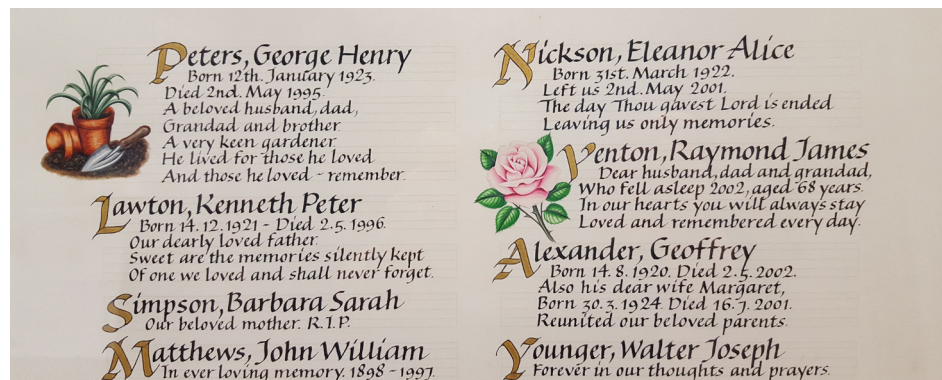 Peters, George Henry
Born 12th. January 1923.
Died 2nd. May 1995.
A beloved husband, dad,
Grandad and brother.
A very keen gardener.
He lived for those he loved
And those he loved ~ remember.
Lawton, Kenneth Peter
Born 14.12.1921 - Died 2.5.1996.
Our dearly loved father.
Sweet are the memories silently kept
Of one we loved and shall never forget.
Simpson, Barbara Sarah
Our beloved mother. R.I.P.
Matthews, John William
In ever loving memory. 1898-1997.
Nickson, Eleanor Alice
Born 31st. March 1922.
Left us 2nd. May 2001.
The day Thou gavest Lord is ended
Leaving us only memories.
Venton, Raymond James
Dear husband, dad and grandad,
Who fell asleep 2002, aged 68 years.
In our hearts you will always stay
Loved and remembered every day.
Alexander, Geoffrey
Born 14.8.1920. Died 2.5.2002.
Also his dear wife Margaret,
Born 30.3.1924 Died 16.7.2001.
Reunited our beloved parents.
Younger, Walter Joseph
Forever in our thoughts and prayers.